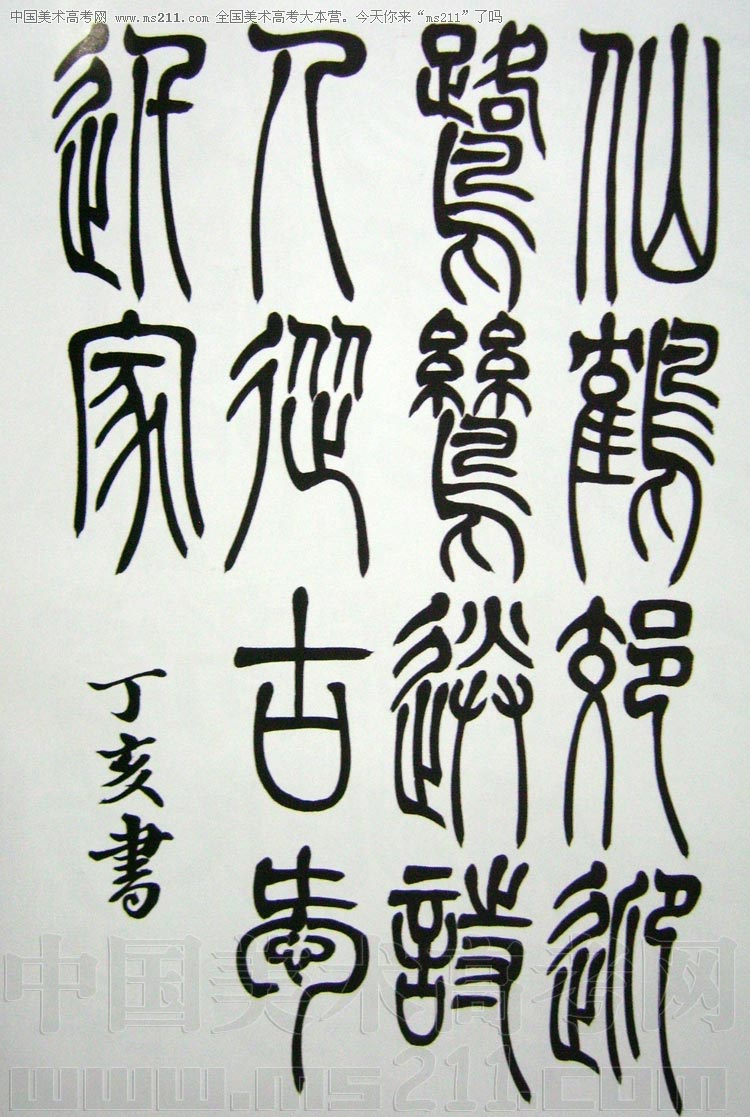 中国美术高考网 www.ms211.com 全国美术高考大本营。今天你来“ms211”了吗
仙鶴郊迎
鷺鷥送詩
人從古愛
近家
丁亥書
中国美术高考网
www.ms211.com